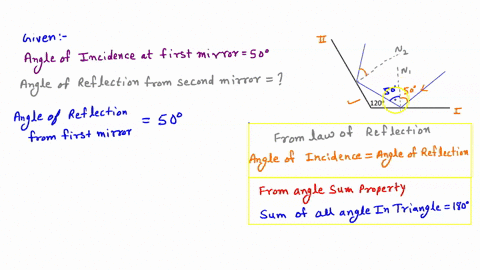 Given:-
Angle of Incidence at first mirror = 50°
Angle of Reflection from second mirror = ?
Angle of Reflection from first mirror = 50°
II
N₂
N₁
50°
50°
120°
I
From law of Reflection
Angle of Incidence = Angle of Reflection
From angle Sum Property
Sum of all angle In Triangle = 180°